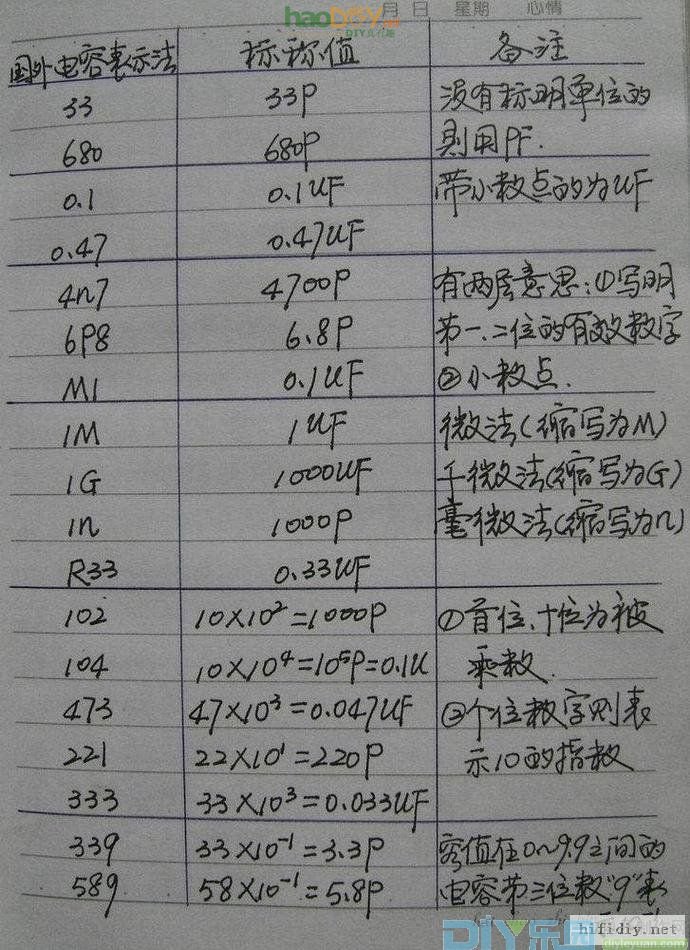 haoDIY
DIY从这
月 日 星期 心情
国外电容表示法 标称值 备注
33 33P 没有标明单位的
680 680P 则用PF.
0.1 0.1UF 带小数点的为UF
0.47 0.47UF
4n7 4700P 有两层意思:①写明
6P8 6.8P 第一、二位的有效数字
M1 0.1UF ②小数点.
1M 1UF 微法(缩写为M)
1G 1000UF 千微法(缩写为G)
1n 1000P 毫微法(缩写为n)
R33 0.33UF
102 10×10²=1000P ①首位、十位为被
104 10×10⁴=10⁵P=0.1U 乘数.
473 47×10³=0.047UF ②个位数字则表
221 22×10¹=220P 示10的指数
333 33×10³=0.033UF
339 33×10⁻¹=3.3P 容值在0~9.9之间的
589 58×10⁻¹=5.8P 电容第三位数"9"表
DIY乐
hifidiy.net
diyleyuan.com